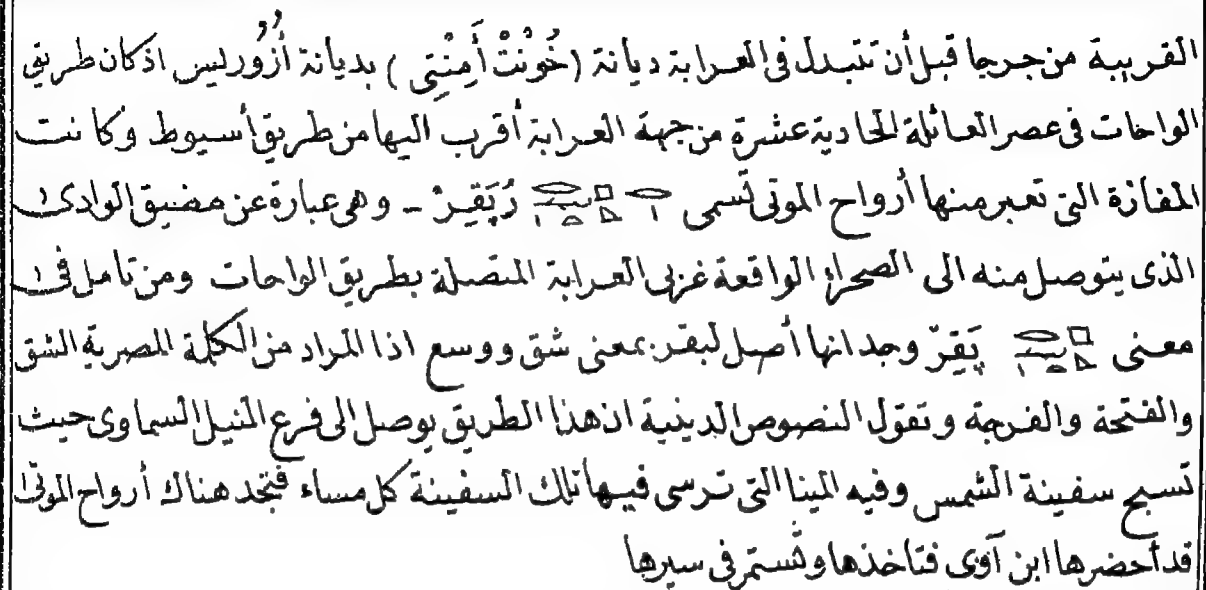 القريبة من جرجا قبل أن تتبدل في العرابة ديانة (خُونْتْ أَمِنْتِى) بديانة أُزُورليس اذ كان طريق
الواحات فى عصر العائلة الحادية عشرة من جهة العرابة أقرب اليها من طريق أسيوط وكانت
المفازة التى تعبر منها أرواح الموتى تسمى رُبَقِرْ - وهى عبارة عن مضيق الوادى
الذى يتوصل منه الى الصحراء الواقعة غربى العرابة المتصلة بطريق الواحات ومن تامل فى
معنى پَقِرّ وجد انها أصل لبقر بمعنى شق ووسع اذا المراد من الكلمة المصرية الشق
والفتحة والفرجة وتقول النصوص الدينية ان هذا الطريق يوصل الى فرع النيل السماوى حيث
تسبح سفينة الشمس وفيه المينا التى ترسى فيها تلك السفينة كل مساء فتجد هناك أرواح الموتى
قد أحضرها ابن آوى فتاخذها وتستمر فى سيرها